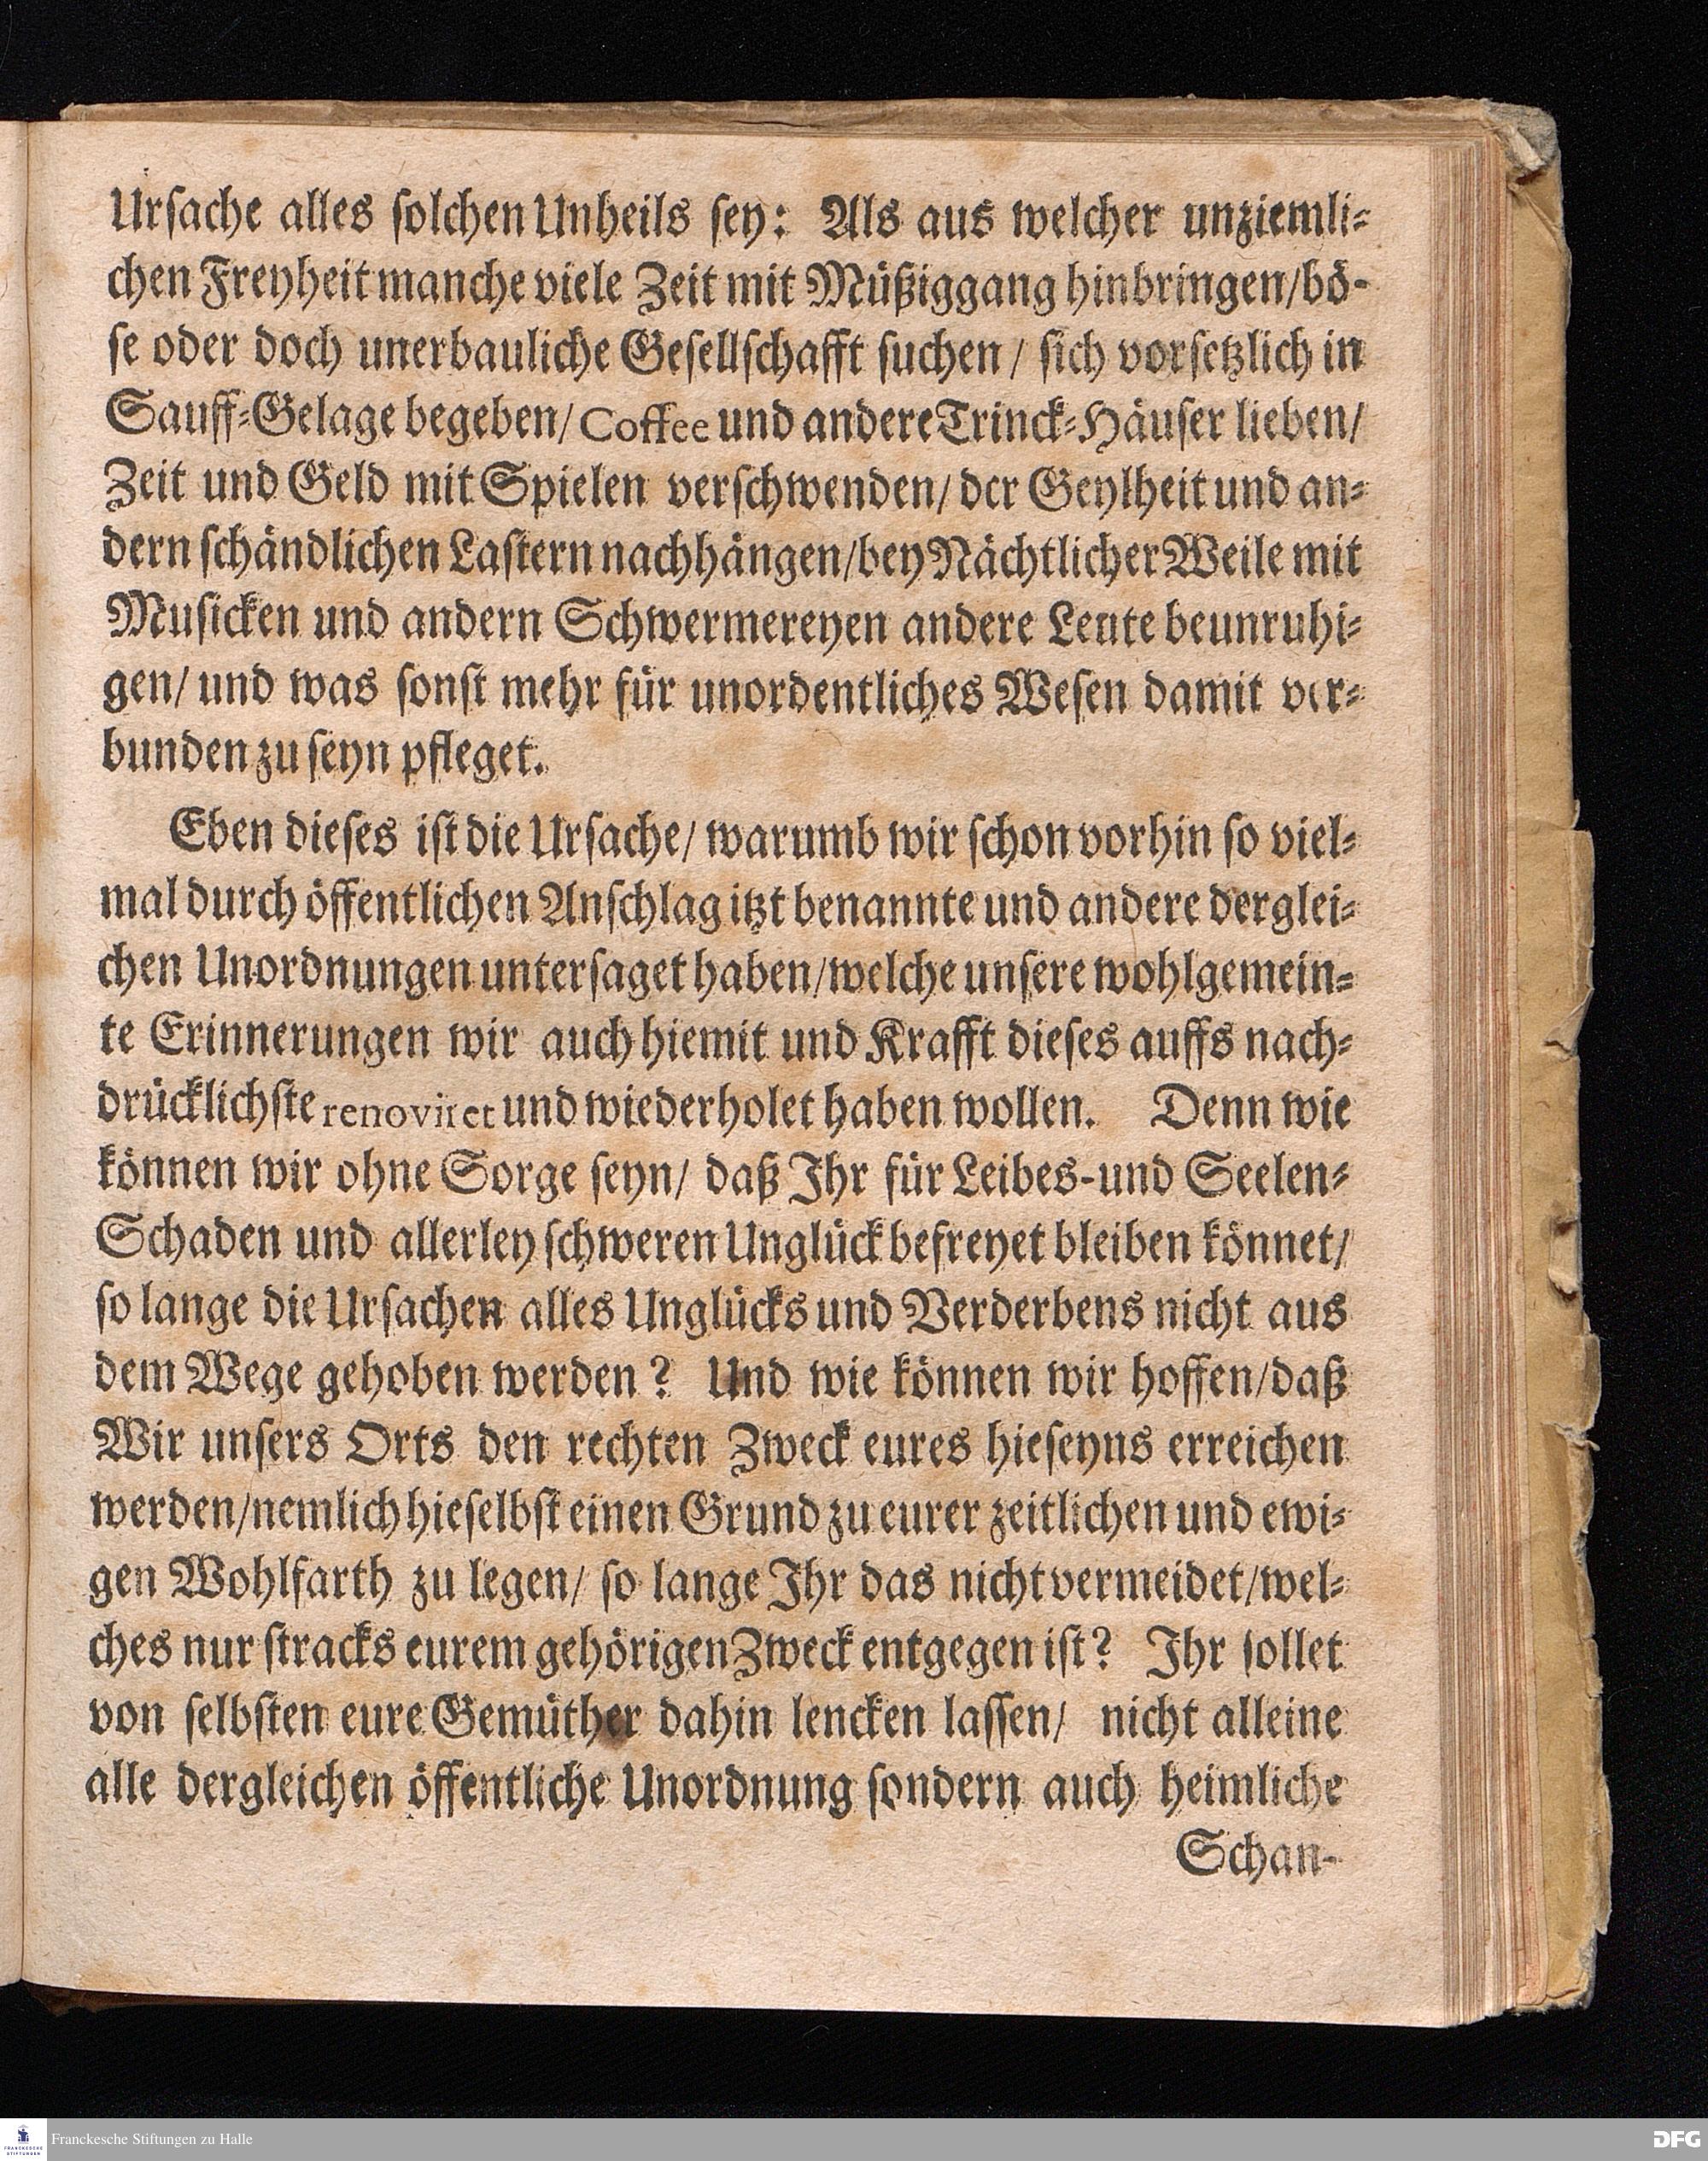 Ursache alles solchen Unheils sey: Als aus welcher unziemli-
chen Freyheit manche viele Zeit mit Müßiggang hinbringen/bö-
se oder doch unerbauliche Gesellschafft suchen / sich vorsetzlich in
Sauff-Gelage begeben/ Coffee und andere Trinck-Häuser lieben/
Zeit und Geld mit Spielen verschwenden/ der Geylheit und an-
dern schändlichen Lastern nachhängen/bey Nächtlicher Weile mit
Musicken und andern Schwermereyen andere Leute beunruhi-
gen/ und was sonst mehr für unordentliches Wesen damit ver-
bunden zu seyn pfleget.
Eben dieses ist die Ursache/ warumb wir schon vorhin so viel-
mal durch öffentlichen Anschlag itzt benannte und andere derglei-
chen Unordnungen untersaget haben/welche unsere wohlgemein-
te Erinnerungen wir auch hiemit und Krafft dieses auffs nach-
drücklichste renoviret und wiederholet haben wollen. Denn wie
können wir ohne Sorge seyn/ daß Ihr für Leibes-und Seelen-
Schaden und allerley schweren Unglück befreyet bleiben könnet/
so lange die Ursachen alles Unglücks und Verderbens nicht aus
dem Wege gehoben werden ? Und wie können wir hoffen/daß
Wir unsers Orts den rechten Zweck eures hieseyns erreichen
werden/nemlich hieselbst einen Grund zu eurer zeitlichen und ewi-
gen Wohlfarth zu legen/ so lange Ihr das nicht vermeidet/wel-
ches nur stracks eurem gehörigen Zweck entgegen ist? Ihr sollet
von selbsten eure Gemüther dahin lencken lassen/ nicht alleine
alle dergleichen öffentliche Unordnung sondern auch heimliche
Schan-
FRANCKESCHE
STIFTUNGEN
Franckesche Stiftungen zu Halle
DFG